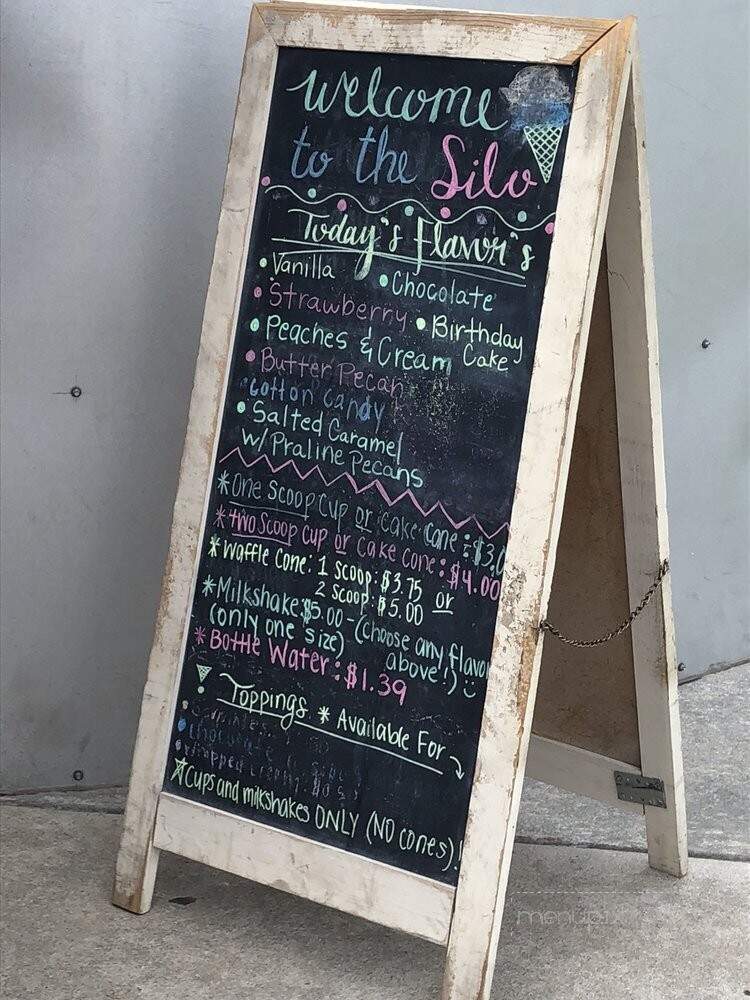 welcome
to the Silo
Today's Flavor's
• Vanilla • Chocolate
• Strawberry • Birthday Cake
• Peaches & Cream
• Butter Pecan
• cotton candy
• Salted Caramel
w/ Praline Pecans
* One Scoop cup or cake cone: $3.0
* two Scoop cup or cake cone: $4.00
* waffle cone: 1 scoop: $3.75 or
2 scoop: $5.00
* Milkshake: $5.00 - (choose any flavor above!)
(only one size)
* Bottle Water: $1.39
Toppings * Available For
Cups and milkshakes ONLY (NO cones)!